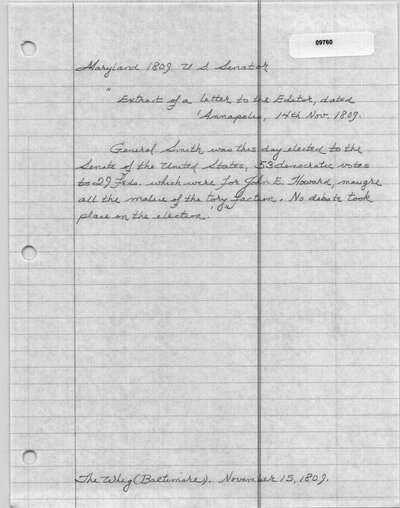 09760
Maryland 1809 U S Senator
" Extract of a letter to the Editor, dated
'Annapolis, 14th Nov. 1809.
General Smith was this day elected to the
Senate of the United States, 53 democratic votes
to 29 Feds. which were for John E. Howard, maugre
all the malice of the tory faction. No debate took
place on the election.' "
The Whig (Baltimore). November 15, 1809.